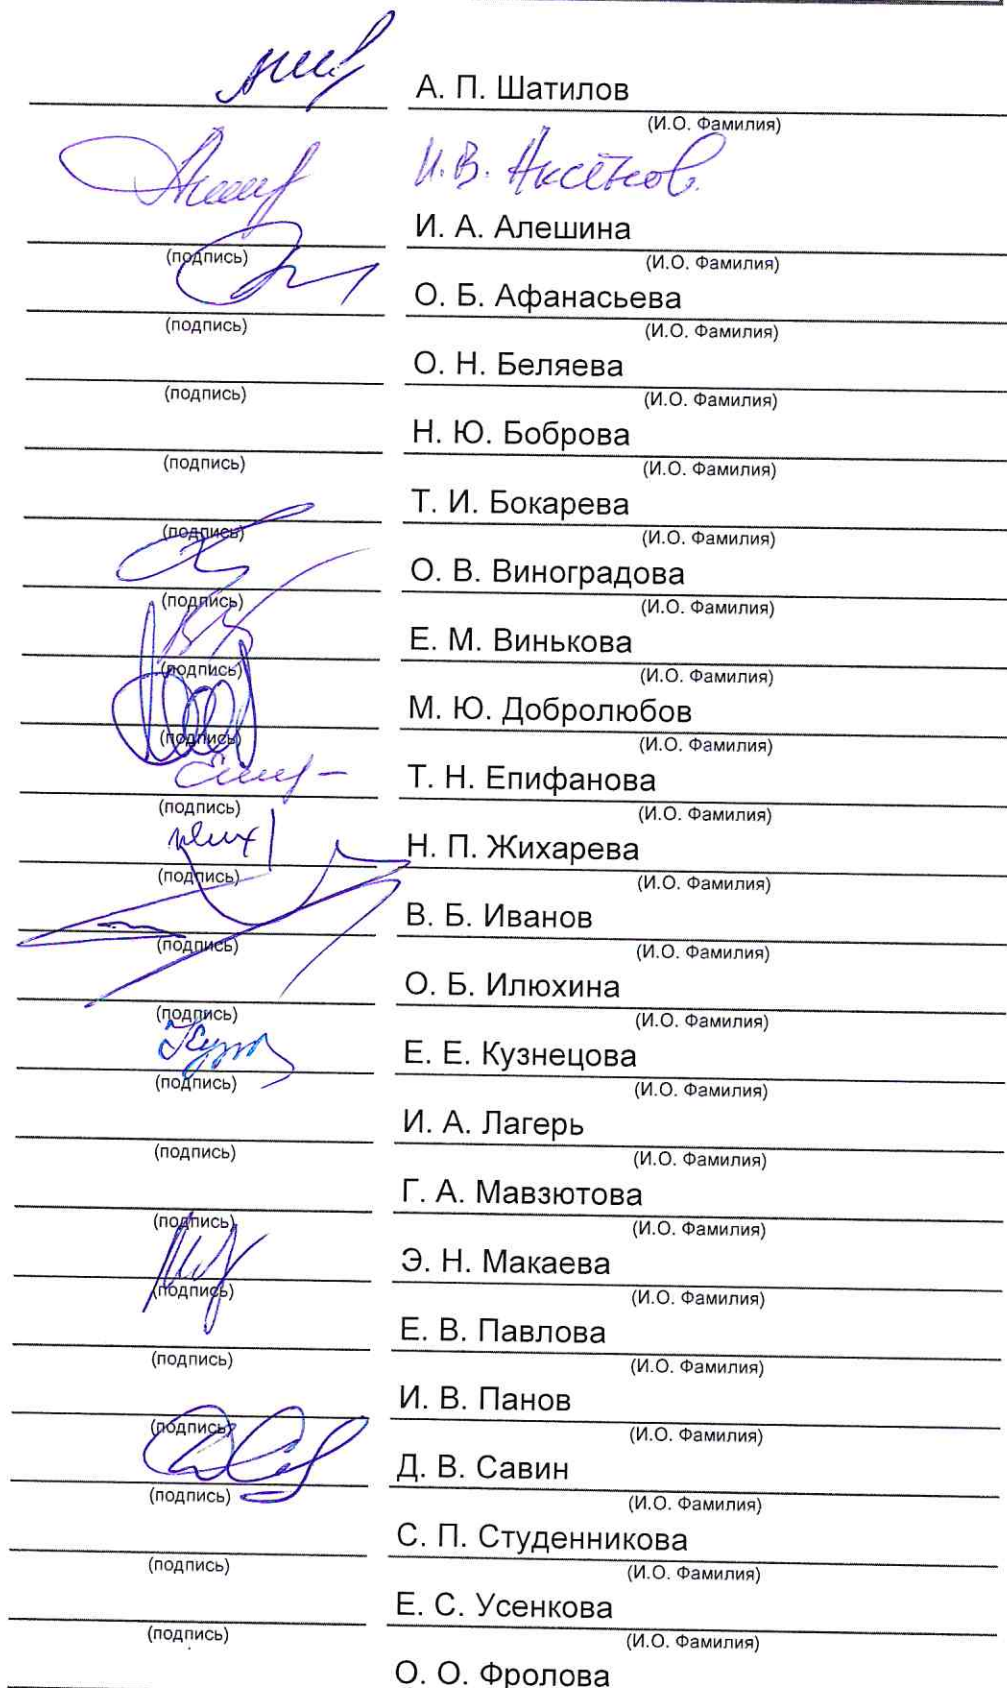 А. П. Шатилов
(И.О. Фамилия)
И.В. Аксёнов
И. А. Алешина
(подпись) (И.О. Фамилия)
О. Б. Афанасьева
(подпись) (И.О. Фамилия)
О. Н. Беляева
(подпись) (И.О. Фамилия)
Н. Ю. Боброва
(подпись) (И.О. Фамилия)
Т. И. Бокарева
(подпись) (И.О. Фамилия)
О. В. Виноградова
(подпись) (И.О. Фамилия)
Е. М. Винькова
(подпись) (И.О. Фамилия)
М. Ю. Добролюбов
(подпись) (И.О. Фамилия)
Т. Н. Епифанова
(подпись) (И.О. Фамилия)
Н. П. Жихарева
(подпись) (И.О. Фамилия)
В. Б. Иванов
(подпись) (И.О. Фамилия)
О. Б. Илюхина
(подпись) (И.О. Фамилия)
Е. Е. Кузнецова
(подпись) (И.О. Фамилия)
И. А. Лагерь
(подпись) (И.О. Фамилия)
Г. А. Мавзютова
(подпись) (И.О. Фамилия)
Э. Н. Макаева
(подпись) (И.О. Фамилия)
Е. В. Павлова
(подпись) (И.О. Фамилия)
И. В. Панов
(подпись) (И.О. Фамилия)
Д. В. Савин
(подпись) (И.О. Фамилия)
С. П. Студенникова
(подпись) (И.О. Фамилия)
Е. С. Усенкова
(подпись) (И.О. Фамилия)
О. О. Фролова